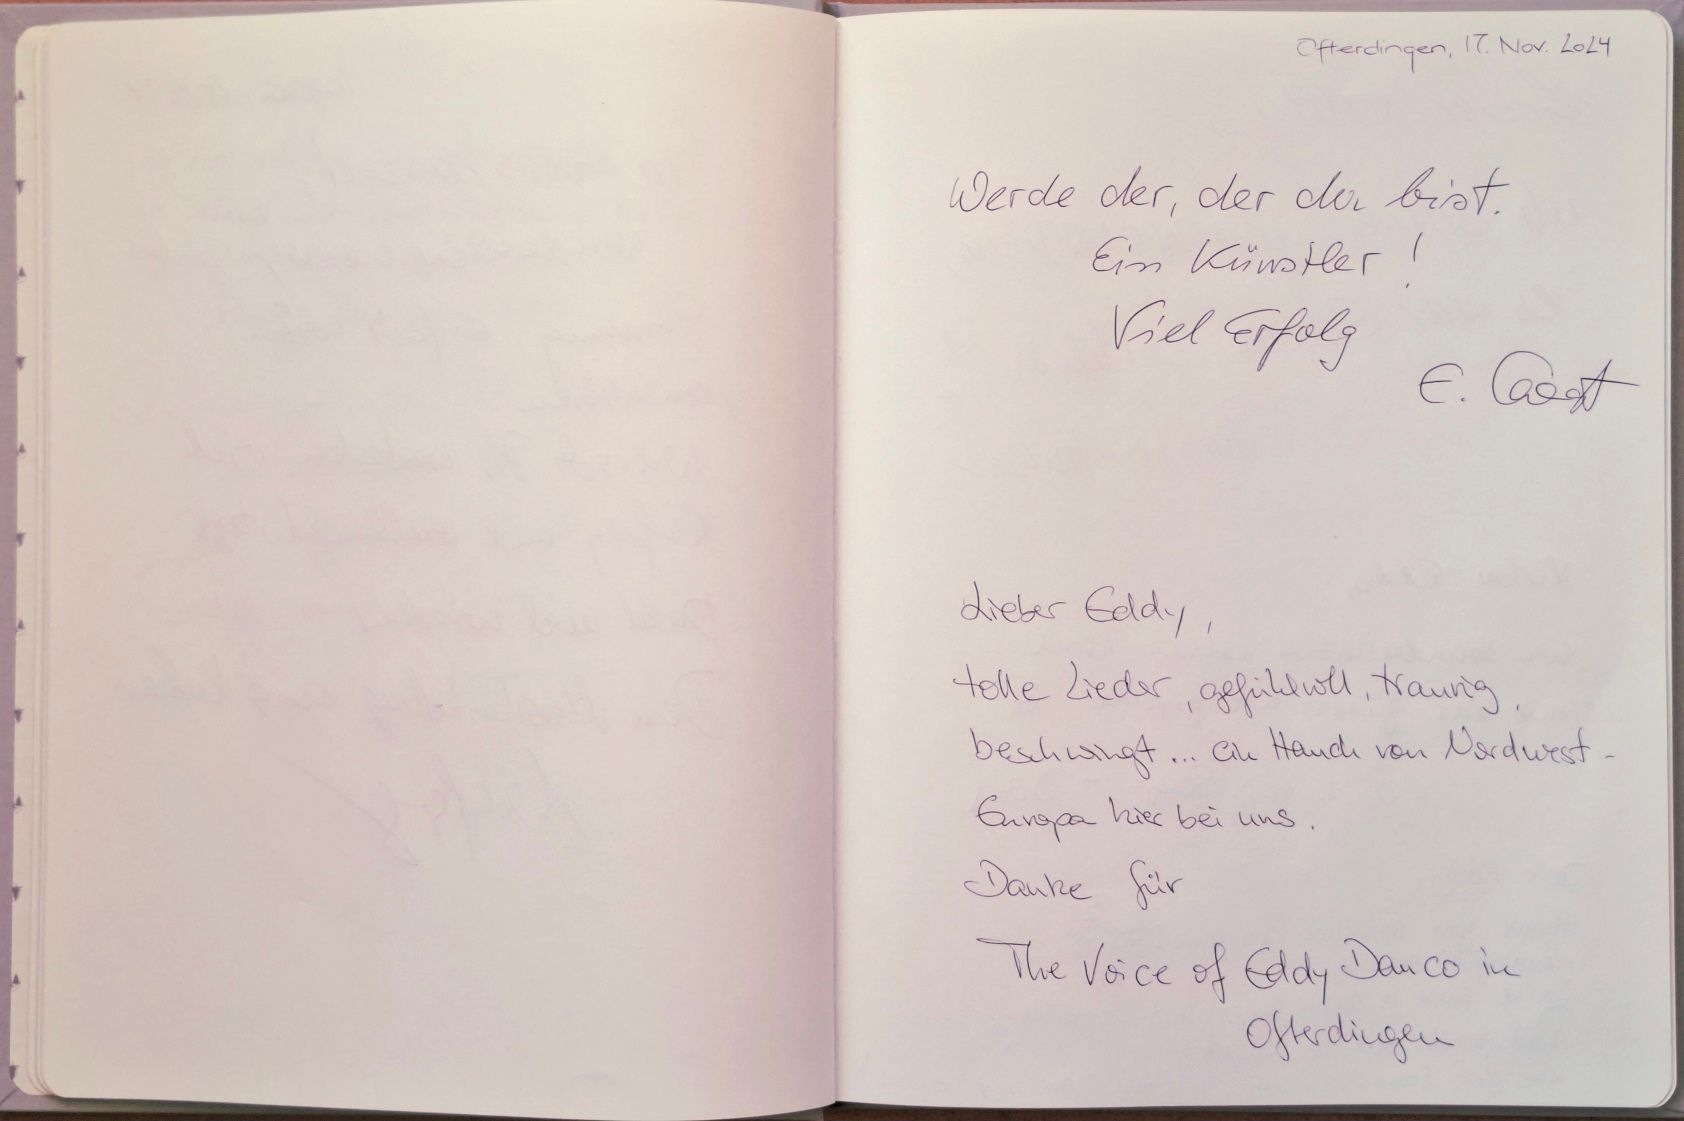 Ofterdingen, 17. Nov. 2024
Werde der, der du bist.
Ein Künstler!
Viel Erfolg
E.
Lieber Eddy,
tolle Lieder, gefühlvoll, traurig,
beschwingt... ein Hauch von Nordwest-
Europa hier bei uns.
Danke für
The Voice of Eddy Danco in
Ofterdingen